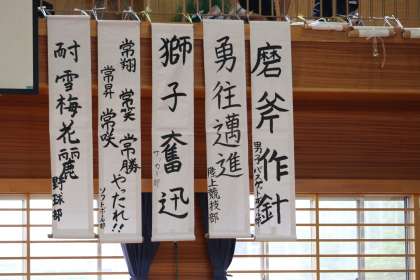 磨斧作針
男子バスケットボール部
勇往邁進
陸上競技部
獅子奮迅
サッカー部
常翔
常笑
常勝
常昇
常咲
やったれ!!
ソフトボール部
耐雪梅花麗
野球部